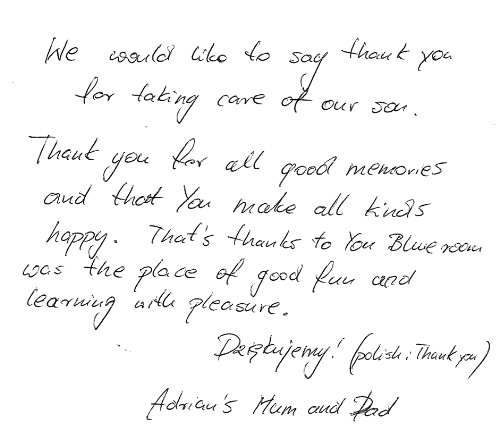 We would like to say thank you
for taking care of our son.
Thank you for all good memories
and that You make all kinds
happy. That's thanks to You Blue room
was the place of good fun and
learning with pleasure.
Dziękujemy! (polish: Thank you)
Adrian's Mum and Dad